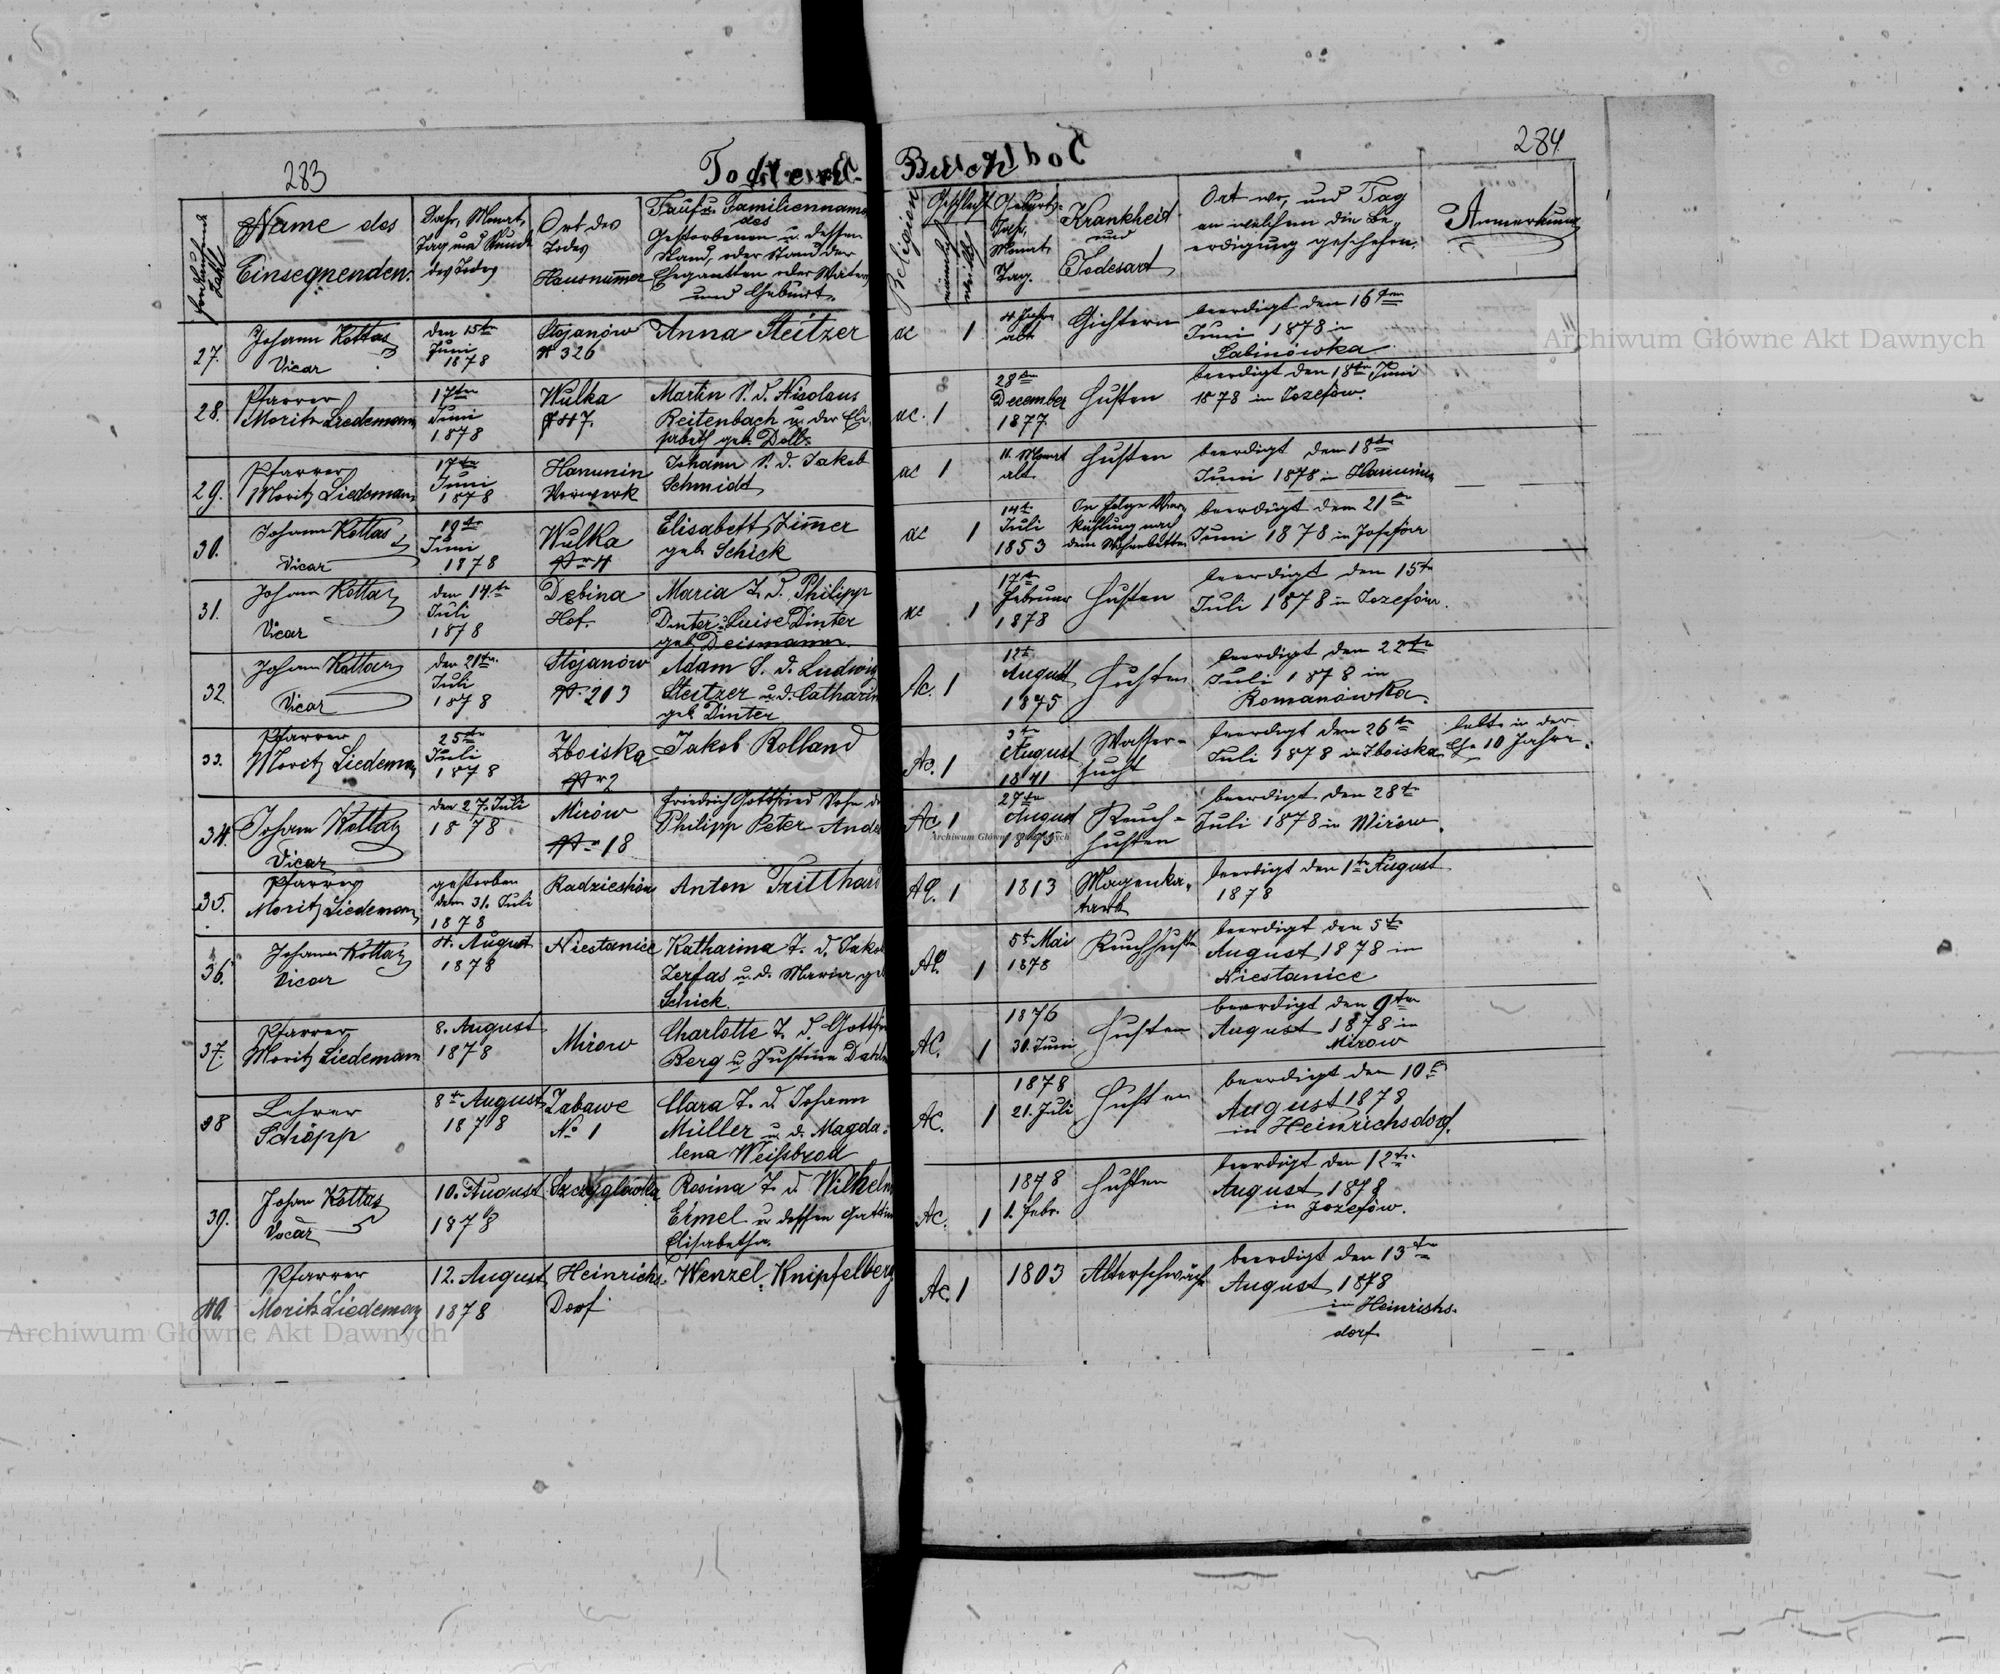 283
284
Todten-
Buch
Fortlaufende
Zahl
Name des
Einsegnenden.
Jahr, Monat,
Tag und Stunde
des Todes
Ort des
Todes
Hausnummer
Tauf u. Familienname
des
Gestorbenen u. dessen
Stand, oder Stand der
Ehegatten oder Vaters
und Geburt.
Religion
Geschlecht
männlich
weiblich
Geburts-
Jahr,
Monat,
Tag.
Krankheit
und
Todesart
Ort wo, und Tag
an welchem die Be-
erdigung geschehen.
Anmerkung
27.
Johann Kottas
Vicar
den 15ten
Juni
1878
Stojanów
N 326
Anna Steitzer
ac
1
4 Jahre
alt
Gichtern
beerdigt den 16ten
Juni 1878 in
Sabinówka
28.
Pfarrer
Moritz Liedemann
17ten
Juni
1878
Wulka
7.
Martin S. d. Nicolaus
Reitenbach u. der Eli-
sabeth geb. Doll
ac. 1
28ten
December
1877.
Husten
beerdigt den 18ten Juni
1878 in Jozefów.
29.
Pfarrer
Moritz Liedemann
17ten
Juni
1878
Hanunin
Vorwerk
Johann S. d. Jakob
Schmidt
ac 1
11. Monat
alt.
Husten
beerdigt dem 18ten
Juni 1878 in Hanunin
30.
Johann Kottas
Vicar
19ten
Juni
1878
Wulka
Nr 4
Elisabeth Zimmer
geb. Schick
ac 1
14ten
Juli
1853
In Folge Ver-
kühlung nach
dem Wochenbette
beerdigt dem 21ten
Juni 1878 in Josefów
31.
Johann Kottas
Vicar
den 14.ten
Juli
1878
Dębina
Hof.
Maria T. d. Philipp
Dinter u. Luise Dinter
geb. Deismann
ac 1
17ten
Februar
1878
Husten
beerdigt den 15ten
Juli 1878 in Jozefów.
32.
Johann Kottas
Vicar
den 21ten.
Juli
1878
Stojanów
Nr 203
Adam S. d. Ludwig
Steitzer u. d. Catharin
geb. Dinter
Ac. 1
12te
August
1875
Husten
beerdigt den 22ten
Juli 1878 in
Romanówka.
33.
Pfarrer
Moritz Liedeman
25ten
Juli
1878
Zboiska
Nr 2
Jakob Rolland
Ac. 1
3ten
August
1841
Wasser-
sucht
beerdigt den 26ten
Juli 1878 in Zboiska
lebte in der
Ehe 10 Jahre.
34.
Johann Kottas
Vicar
den 27. Juli
1878
Mirów
Nr 18
Friedrich Gottfried Sohn d
Philipp Peter Ande
Ac 1
27ten
August
Keuch-
husten
beerdigt den 28ten
Juli 1878 in Mirów.
35.
Pfarrer
Moritz Liedeman
gestorben
dem 31. Juli
1878
Anton Tritthar
AC. 1
1813
Magenka-
tarrh
beerdigt den 1ten August
1878
36.
Johann Kottas
Vicar
4. August
1878
Niestanice
Katharina T. d. Jako
Zerfas u. d. Maria ge
Schick.
AC. 1
5te Mai
1878
Keuchhusten
beerdigt den 5ten
August 1878 in
Niestanice
37.
Pfarrer
Moritz Liedemann
8. August
1878
Mirow
Charlotte T. d. Gottfri
Berg u. Justine
AC. 1
1876
30. Juni
Husten
beerdigt den 9ten
August 1878 in
Mirow
38
Lehrer
Schöpp
8ten August
1878
Zabawe
No 1
Clara T. d. Johann
Müller u. d. Magda-
lena Weißbrod
Ac. 1
1878
21. Juli
Husten
beerdigt den 10ten
August 1878
in Heinrichsdorf.
39.
Johan Kottas
Vicar
10. August
1878
Szczyglówka
Rosina T. d. Wilhelm
Ermel u. dessen Gattin
Elisabetha.
Ac. 1
1878
1. Febr.
Husten
beerdigt den 12ten
August 1878
in Jozefów.
40.
Pfarrer
Moritz Liedeman
12. August
1878
Heinrichs-
Dorf
Wenzel Knipfelberg
Ac. 1
1803
Alterschwäche
beerdigt den 13ten
August 1878
in Heinrichs-
dorf.
Archiwum Główne Akt Dawnych
Archiwum Główne Akt Dawnych
Archiwum Główne Akt Dawnych